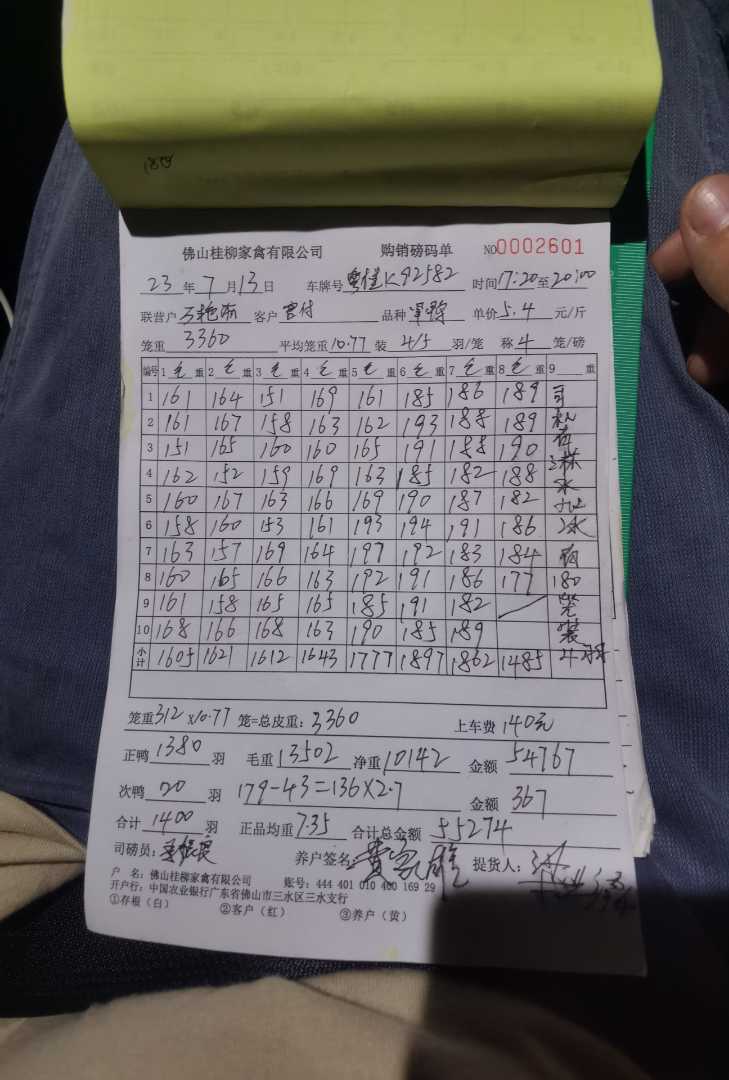 佛山桂柳家禽有限公司 购销磅码单 NO0002601
23年7月13日 车牌号 K92582 时间17:20至20:00
联营户 客户 品种 单价5.4元/斤
笼重3360 平均笼重10.77 装4/5羽/笼 称4笼/磅
编号 1毛重 2毛重 3毛重 4毛重 5毛重 6毛重 7毛重 8毛重 9重
1 161 164 151 169 161 185 186 189 司
2 161 167 158 163 162 193 188 189 机
3 151 165 160 160 165 191 188 190 在
4 162 152 159 169 163 185 182 188
5 160 167 163 166 169 190 187 182
6 158 160 153 161 193 194 191 186
7 163 157 169 164 197 192 183 184
8 160 165 166 163 192 191 186 177 180
9 161 158 165 165 185 191 182
10 168 166 168 163 190 185 189 装
小计 1605 1621 1612 1643 1777 1897 1862 1485 羽
笼重312×10.77笼=总皮重:3360 上车费140元
正鸭1380羽 毛重13502 净重10142 金额54767
次鸭20羽 179-43=136×2.7 金额367
合计1400羽 正品均重7.35 合计总金额55274
司磅员: 养户签名: 黄家雄 提货人:
户 名:佛山桂柳家禽有限公司 账号:444 401 010 400 169 29
开户行:中国农业银行广东省佛山市三水区三水支行
①存根(白) ②客户(红) ③养户(黄)